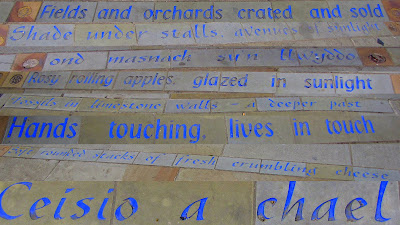 Fields and orchards crated and sold
Shade under stalls, avenues of sunlight
ond masnach sy'n llwyddo
Rosy railing apples, glazed in sunlight
Fossils in limestone walls - a deeper past
Hands touching, lives in touch
rounded stacks of fresh crumbling cheese
Ceisio a chael